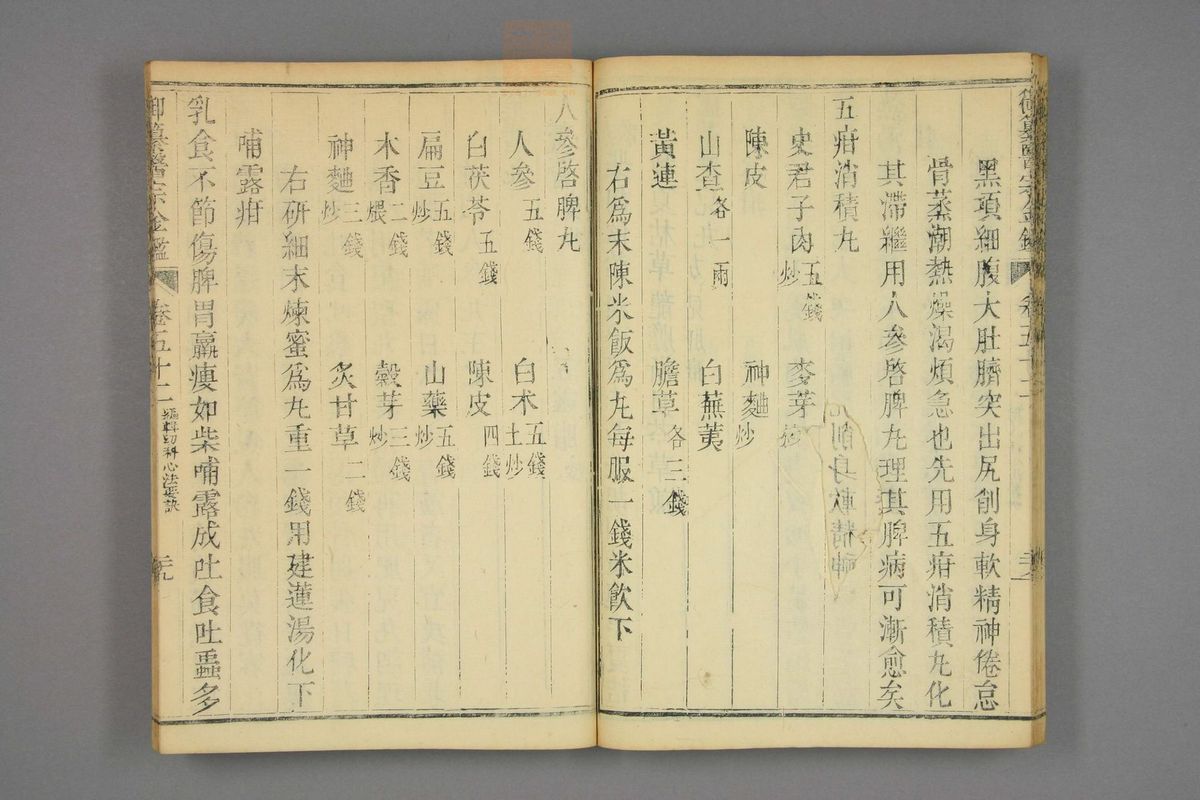 御纂醫宗金鑑
卷五十二
黑項細腹大肚臍突出尻削身軟精神倦怠
骨蒸潮熱燥渴煩急也先用五疳消積丸化
其滯繼用人參啓脾丸理其脾病可漸愈矣
五疳消積丸
史君子肉炒五錢 麥芽炒
陳皮 神麯炒
山查各一兩 白蕪荑
黃連 膽草各三錢
右爲末陳米飯爲丸每服一錢米飲下
人參啓脾丸
人參五錢 白朮土炒五錢
白茯苓五錢 陳皮四錢
扁豆炒五錢 山藥炒五錢
木香煨二錢 穀芽炒三錢
神麯炒三錢 炙甘草二錢
右研細末煉蜜爲丸重一錢用建蓮湯化下
哺露疳
乳食不節傷脾胃羸瘦如柴哺露成吐食吐蟲多
御纂醫宗金鑑
卷五十二
編輯幼科心法要訣
三九